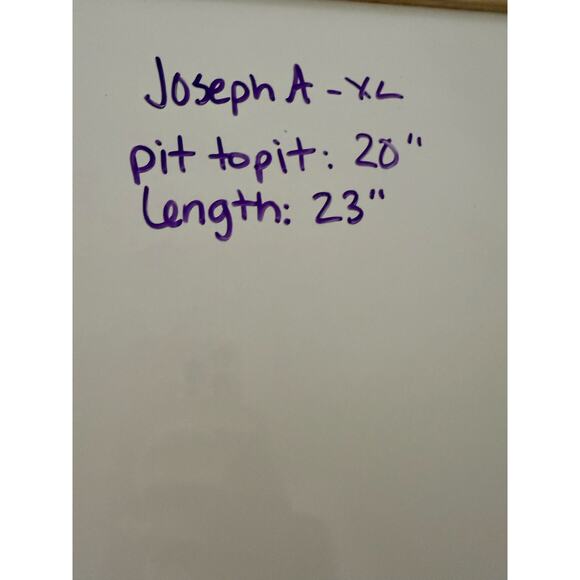 Joseph A - XL
pit to pit: 20"
Length: 23"